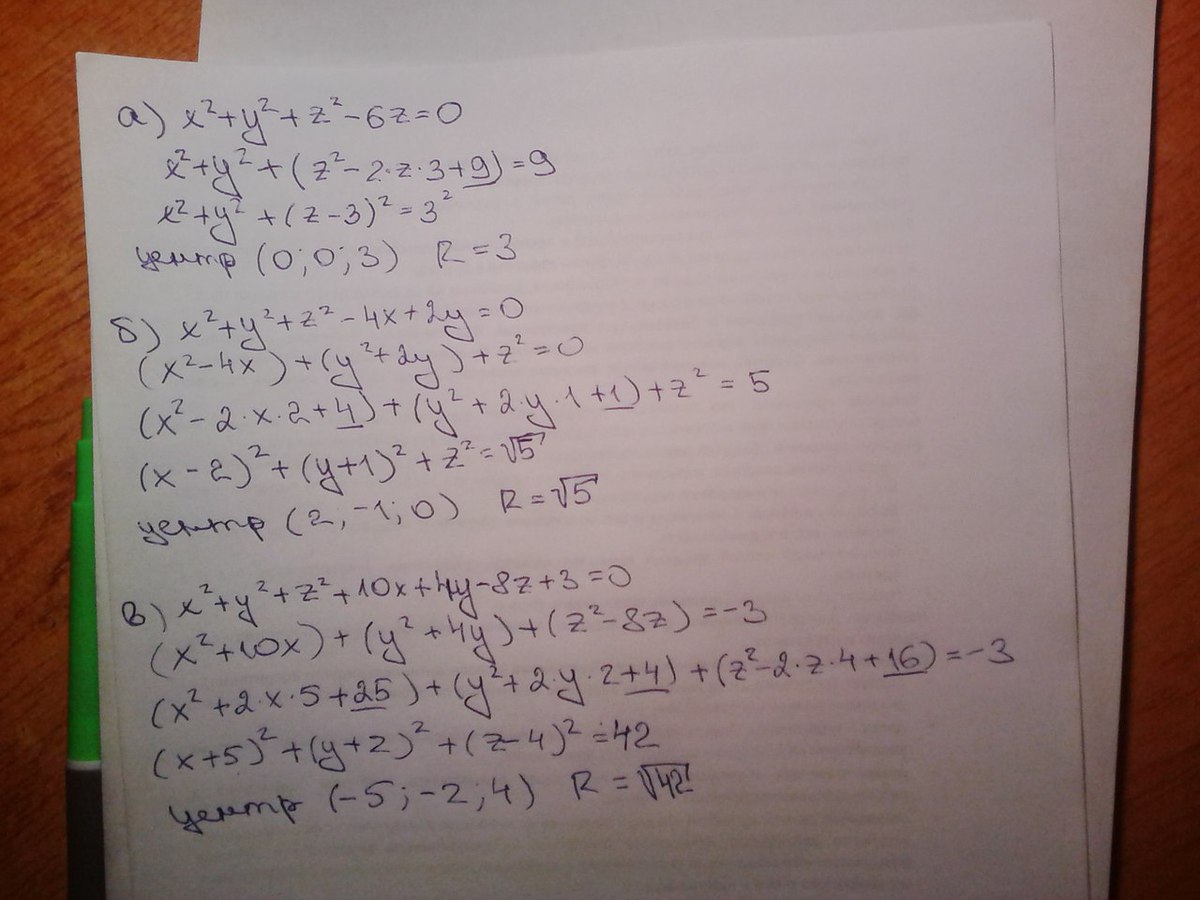 а) x²+y²+z²-6z=0
x²+y²+(z²-2·z·3+9)=9
x²+y²+(z-3)²=3²
центр (0;0;3) R=3
б) x²+y²+z²-4x+2y=0
(x²-4x)+(y²+2y)+z²=0
(x²-2·x·2+4)+(y²+2·y·1+1)+z²=5
(x-2)²+(y+1)²+z²=√5
центр (2,-1;0) R=√5
в) x²+y²+z²+10x+4y-8z+3=0
(x²+10x)+(y²+4y)+(z²-8z)=-3
(x²+2·x·5+25)+(y²+2·y·2+4)+(z²-2·z·4+16)=-3
(x+5)²+(y+2)²+(z-4)²=42
центр (-5;-2;4) R=√42